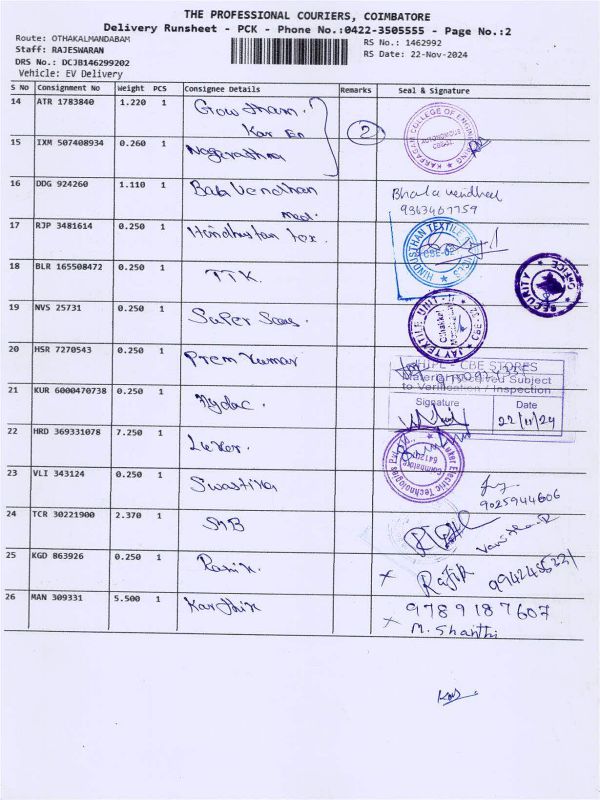 THE PROFESSIONAL COURIERS, COIMBATORE
Delivery Runsheet - PCK - Phone No.:0422-3505555 - Page No.:2
Route: OTHAKALMANDABAM
Staff: RAJESWARAN
RS No.: 1462992
DRS No.: DCJB146299202
RS Date: 22-Nov-2024
Vehicle: EV Delivery
S No Consignment No Weight PCS Consignee Details Remarks Seal & Signature
14 ATR 1783840 1.220 1 Gowtham.
2
KARPAGAM COLLEGE OF ENGINEERING
AUTONOMOUS
15 IXM 507408934 0.260 1
16 DDG 924260 1.110 1 Bala Vendhan
med.
17 RJP 3481614 0.250 1 Hindhustan Tex.
HINDUSTHAN TEXTILES
CBE-02
18 BLR 165508472 0.250 1 TTK.
SECURITY OFFICE
19 NVS 25731 0.250 1 Super Sales
JAY TEXTILE UNIT
20 HSR 7270543 1 0.250 Prem kumar
CBE STORES
Material Received Subject
to Verification / Inspection
21 KUR 6000470738 0.250 1 Hydac.
Signature Date
22/11/24
22 HRD 369331078 7.250 1 Luker.
Luker Electric Technologies Pvt. Ltd.,
Coimbatore
23 VLI 343124 0.250 1 Swastika
9025944606
24 TCR 30221900 2.370 1
25 KGD 863926 0.250 1 Rafik.
Rafik
26 MAN 309331 5.500 1 Karthik
9789187607
M. Shanthi